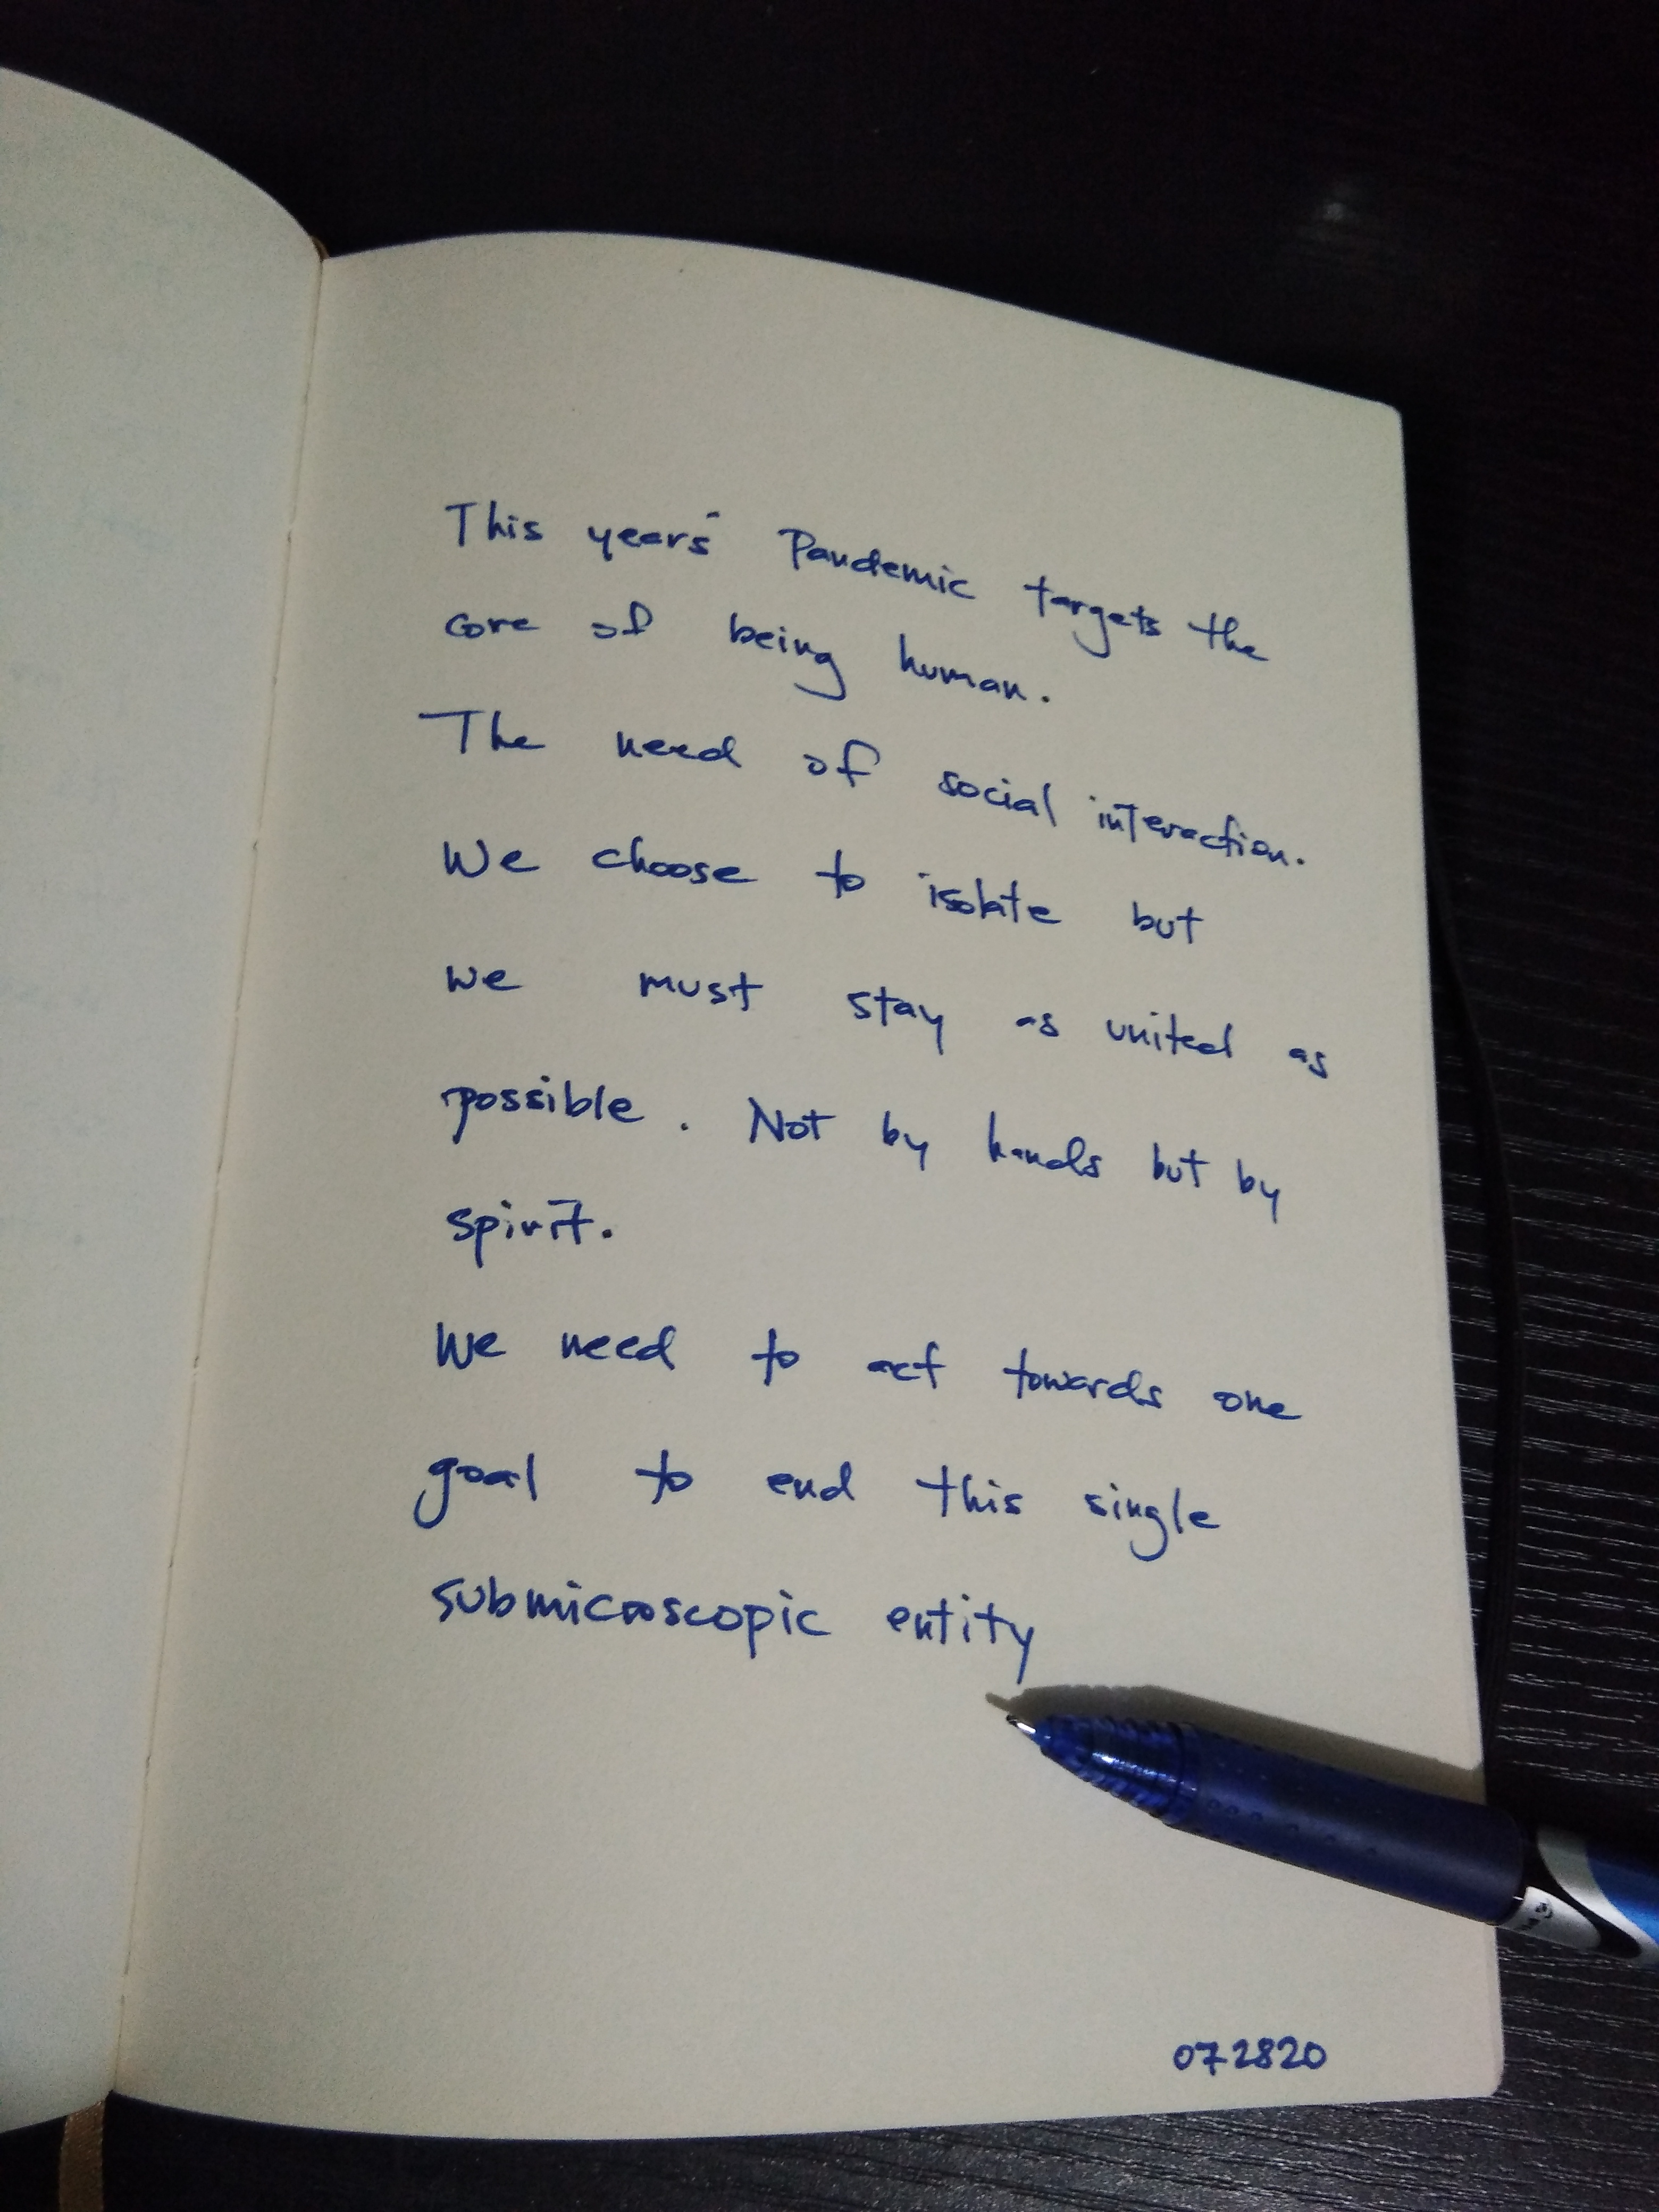 This years' Pandemic targets the
core of being human.
The need of social interaction.
We choose to isolate but
we must stay as united as
possible. Not by hands but by
spirit.
We need to act towards one
goal to end this single
submicroscopic entity
072820